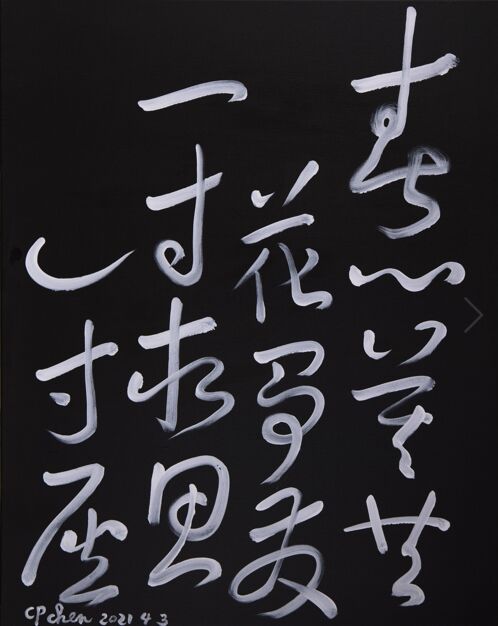 春心莫共
花爭發
一寸相思
一寸灰
CP chen 2021 4 3